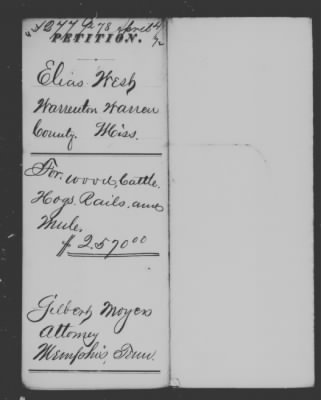 PETITION.
Elias West
Warrenton Warren
County. Miss.
For. wood, Cattle.
Hogs. Rails. and
Mule.
$ 2.570 00
Gilbert Moyers
Attorney
Memphis, Tenn.